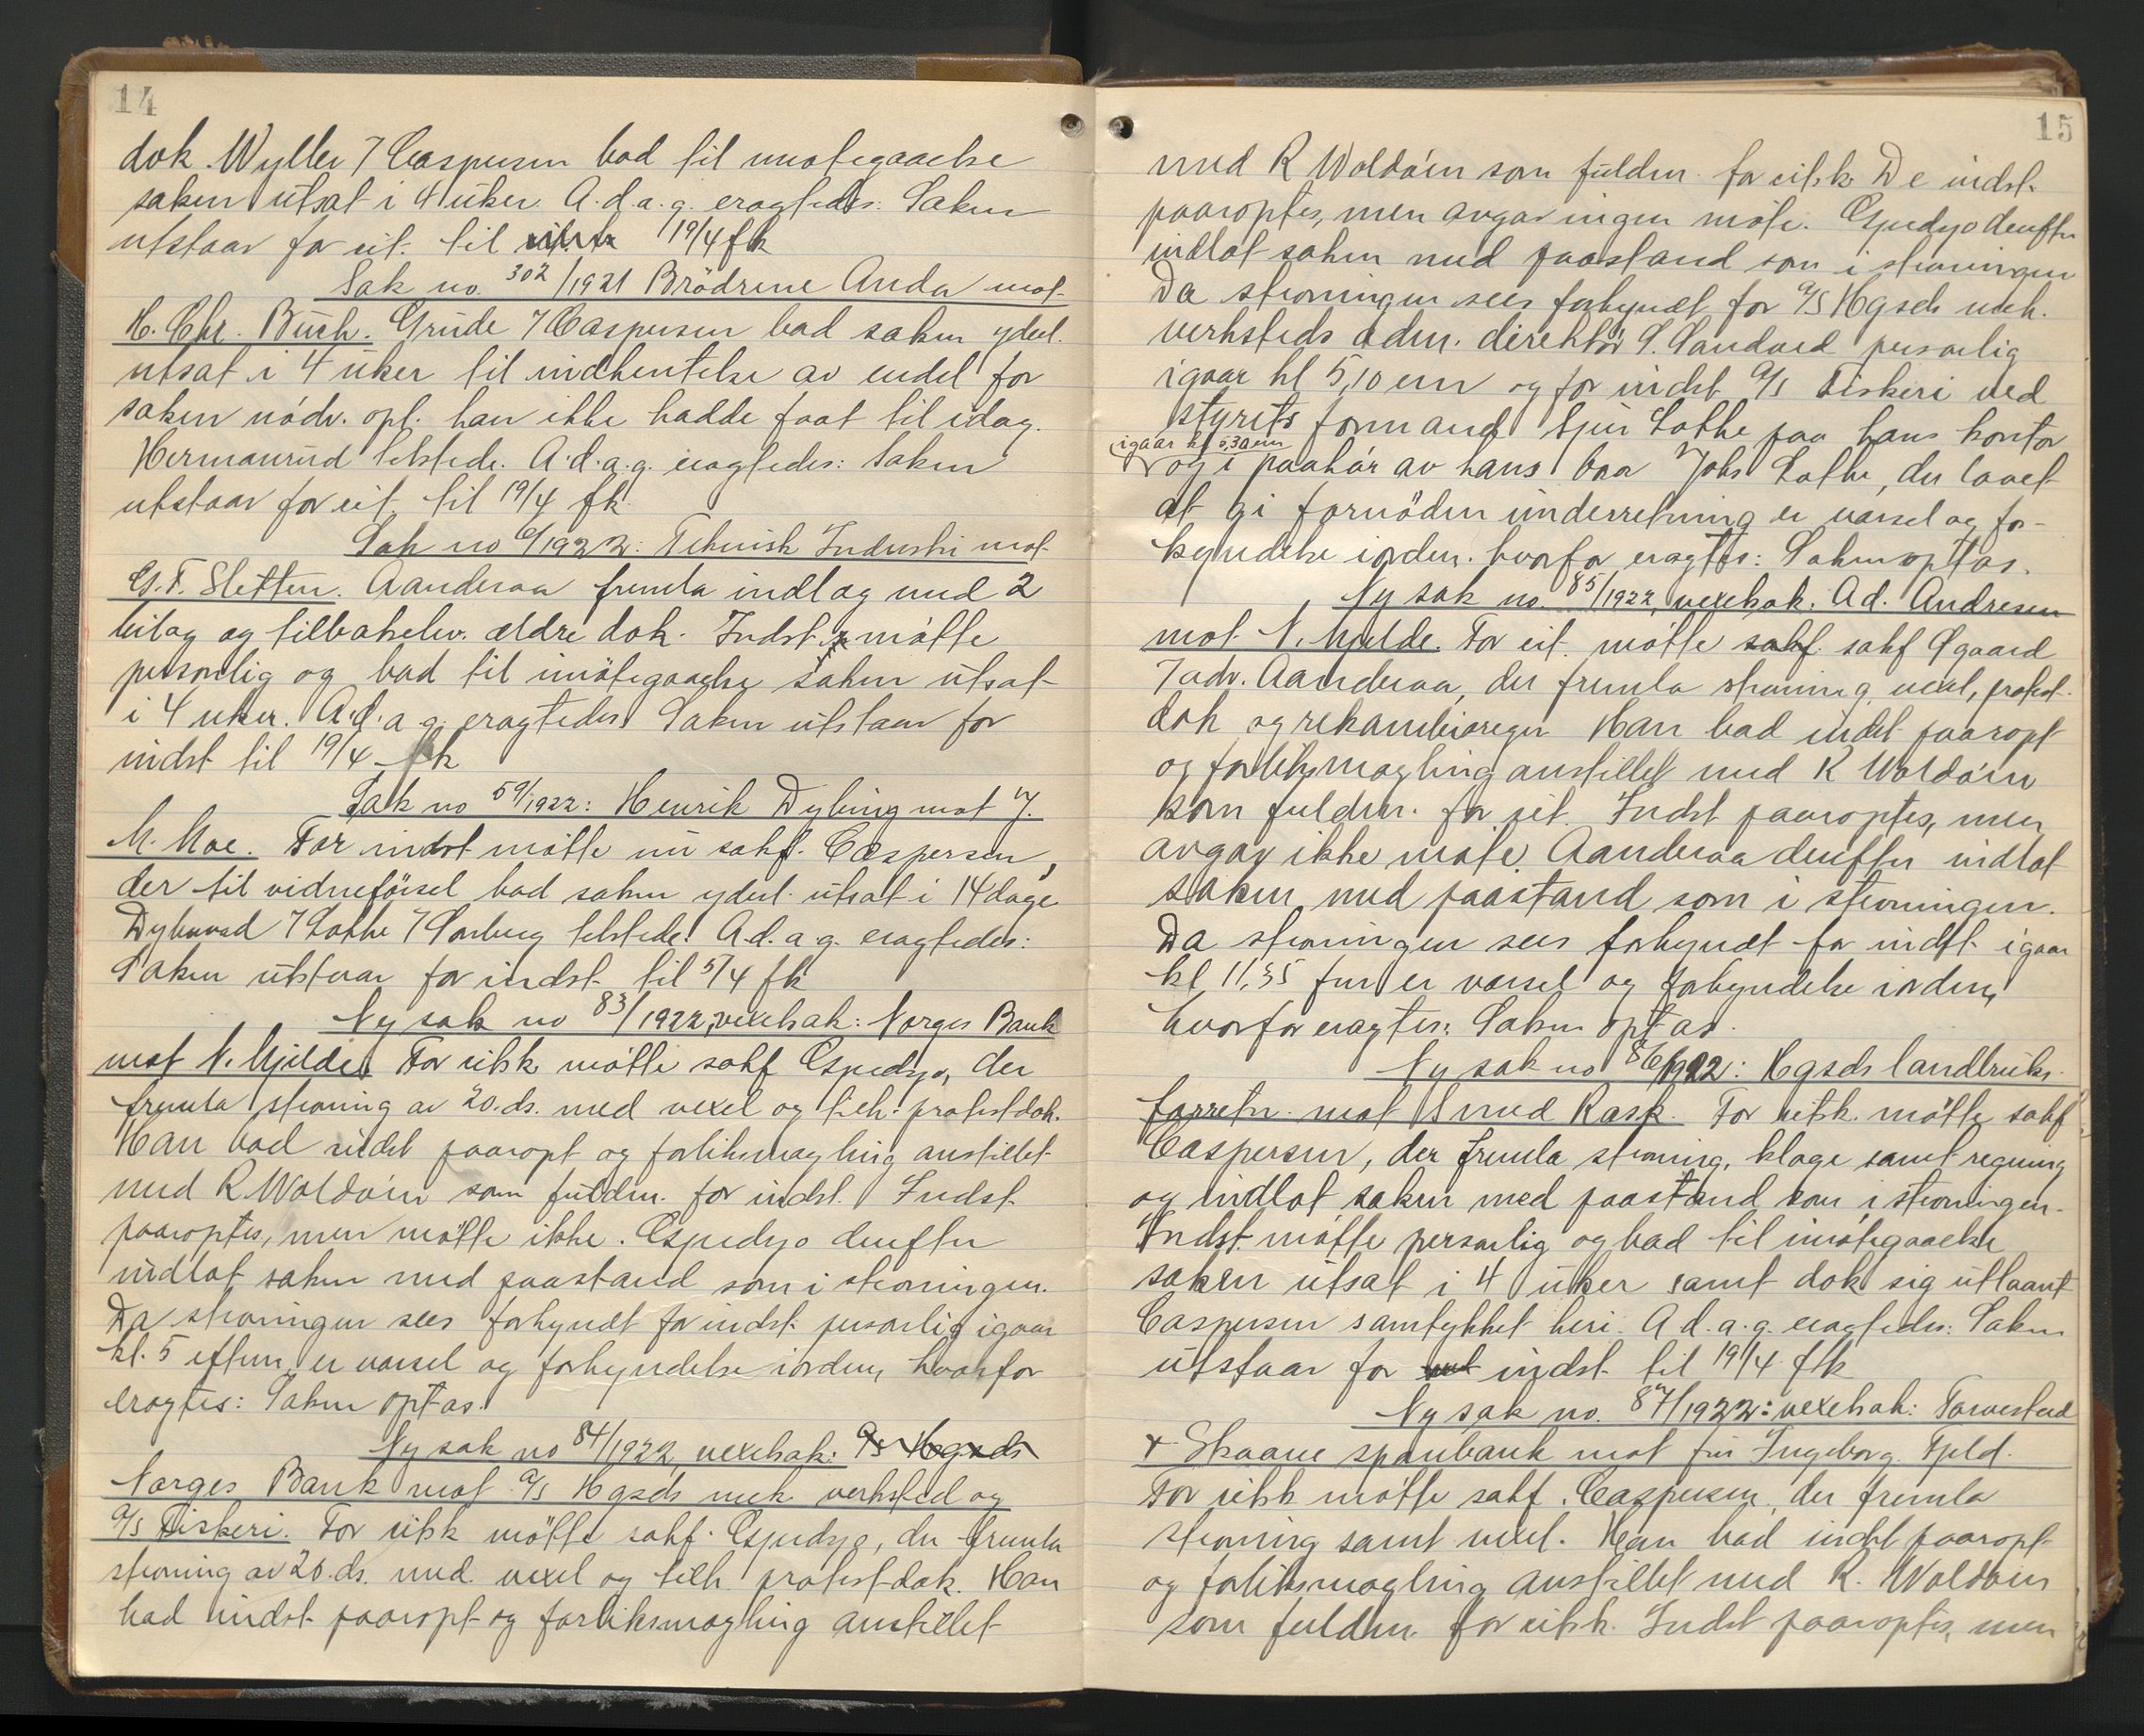 14
dok. Wyller 7 Caspersen bad til imøtegaaelse
saken utsat i 4 uker. A.d.a.g. eragtedes: Saken
utstaar for cit. til 19/4 fk
Sak no. 302/1921 Brödrene Anda mot
H. Chr. Buch. Grude 7 Caspersen bad saken yderl.
utsat i 4 uker til indhentelse av endel for
saken nödv. opl. han ikke hadde faat til idag.
Hermanrud tilstede. A.d.a.g. eragtedes: Saken
utstaar for cit. til 19/4 fk.
Sak no 6/1922: Teknisk Industri mot
G.T. Sletten. Aanderaa fremla indlæg med 2
bilag og tilbakelev. ældre dok. Indst. mötte
personlig og bad til imötegaaelse saken utsat
i 4 uker. A.d.a.g. eragtedes: Saken utstaar for
indst til 19/4 fk
Sak no 59/1922: Henrik Dybing mot J.
M. Moe. For indst mötte nu sakf. Caspersen,
der til vidneförsel bad saken yderl. utsat i 14 dage
7 Lothe 7 tilstede. A.d.a.g. eragtedes:
Saken utstaar for indst. til 5/4 fk
Ny sak no 83/1922, vexelsak: Norges Bank
mot N. Mjelde. For citsk mötte sakf Espedys, der
fremla stevning av 20.ds. med vexel og tilh. protestdok.
Han bad indst paaropt og forliksmægling anstillet
med R. Woldøien som fuldm. for indst. Indst.
paaroptes, men mötte ikke. Espedys derefter
indlot saken med paastand som i stevningen.
Da stevningen sees forkyndt for indst. personlig igaar
kl. 5 efterm. er varsel og forkyndelse iorden, hvorfor
eragtes: Saken optas.
Ny sak no 84/1922, vexelsak: A/S Hgsds
Norges Bank mot A/S Hgsds mek verksted og
A/S Fiskeri. For citsk mötte sakf. Espedys, der fremla
stevning av 20.ds. med vexel og tilh. protestdok. Han
bad indst paaropt og forliksmægling anstillet
15
med R Woldøien som fuldm. for citsk. De indst.
paaroptes, men avgav ingen møte. Espedys derefter
indlot saken med paastand som i stevningen
Da stevningen sees forkyndt for A/S Hgsds mek.
verksteds adm. direktör S. Sandved personlig
igaar kl 5,10 em og for indst A/S Fiskeri ved
styrets formand Lothe paa hans kontor
igaar kl 5,30 em
og i paahör av hans bror Johs Lothe, der lovet
at gi fornöden underretning er varsel og for-
kyndelse iorden. hvorfor eragtes: Saken optas.
Ny sak no. 85/1922, vexelsak. Ad. Andresen
mot N. Mjelde. For cit. mötte sakf. sakf Ogaard
7 adv. Aanderaa, der fremla stevning, vexel, protest-
dok og rekambioregn. Han bad indst paaropt
og forliksmægling anstillet med R Woldøien
som fuldm. for cit. Indst paaroptes, men
avgav ikke møte. Aanderaa derefter indlot
saken med paastand som i stevningen.
Da stevningen sees forkyndt for indst. igaar
kl 11,35 fm er varsel og forkyndelse iorden,
hvorfor eragtes: Saken optas.
Ny sak no 86/1922: Hgsds landbruks-
forretn. mot Smed Rask. For citsk. mötte sakf
Caspersen, der fremla stevning, klage samt regning
og indlot saken med paastand som i stevningen.
Indst. mötte personlig og bad til imötegaaelse
saken utsat i 4 uker samt dok sig utlaant
Caspersen samtykket heri. A.d.a.g. eragtedes: Saken
utstaar for indst. til 19/4 fk
Ny sak no. 87/1922: vexelsak: Torvestad
+ Skaare sparebank mot fru Ingeborg Fjeld.
For citsk mötte sakf. Caspersen, der fremla
stevning samt vexel. Han bad indst paaropt
og forliksmægling anstillet med R. Woldøien
som fuldm. for citsk. Indst paaroptes, men